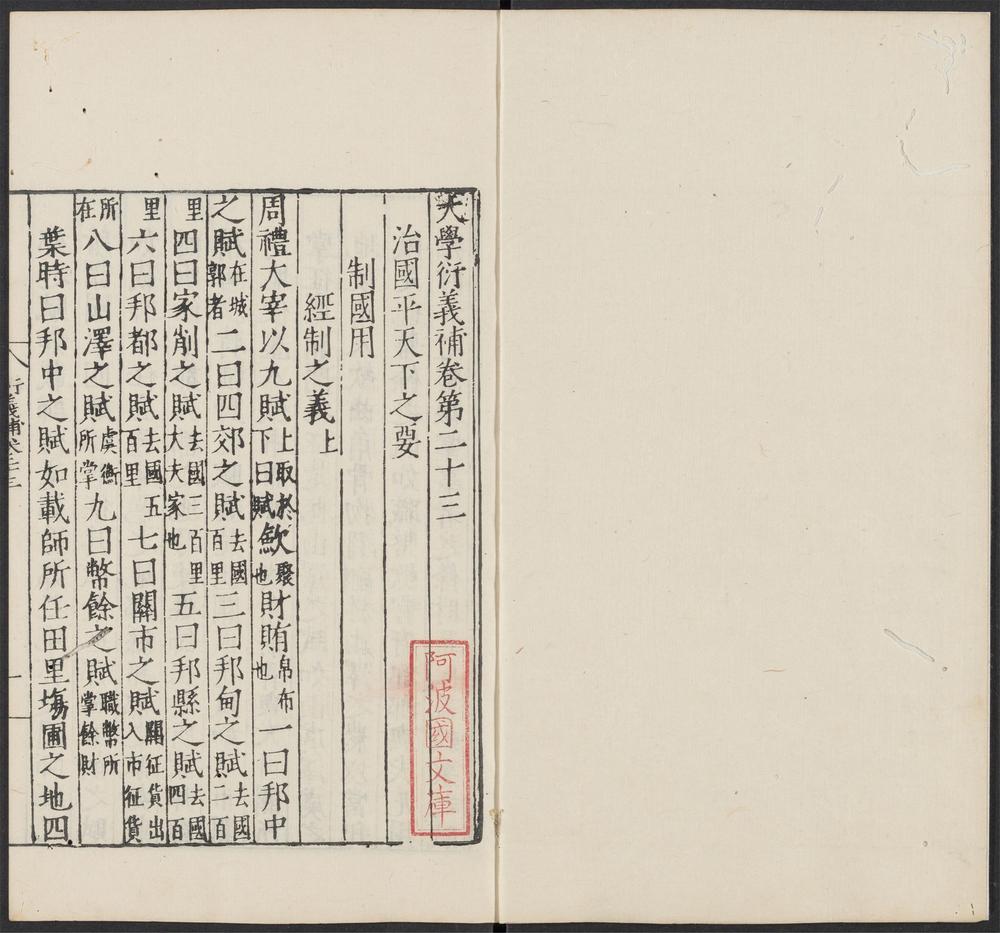 大學衍義補卷第二十三
治國平天下之要
制國用
經制之義上
周禮大宰以九賦上取於下曰賦斂聚也財賄帛布也一曰邦中
之賦在城郭者二曰四郊之賦去國百里三曰邦甸之賦去國二百
里四曰家削之賦去國三百里大夫家也五曰邦縣之賦去國四百
里六曰邦都之賦去國五百里七曰關市之賦關征貨出入市征貨
所在八曰山澤之賦虞衡所掌九曰幣餘之賦職幣所掌餘財
葉時曰邦中之賦如載師所任田里塲圃之地四
阿波國文庫